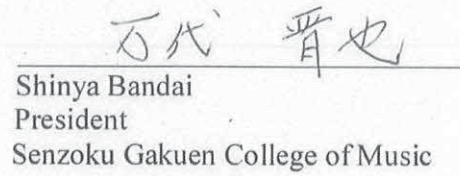 万代 晋也
Shinya Bandai
President
Senzoku Gakuen College of Music